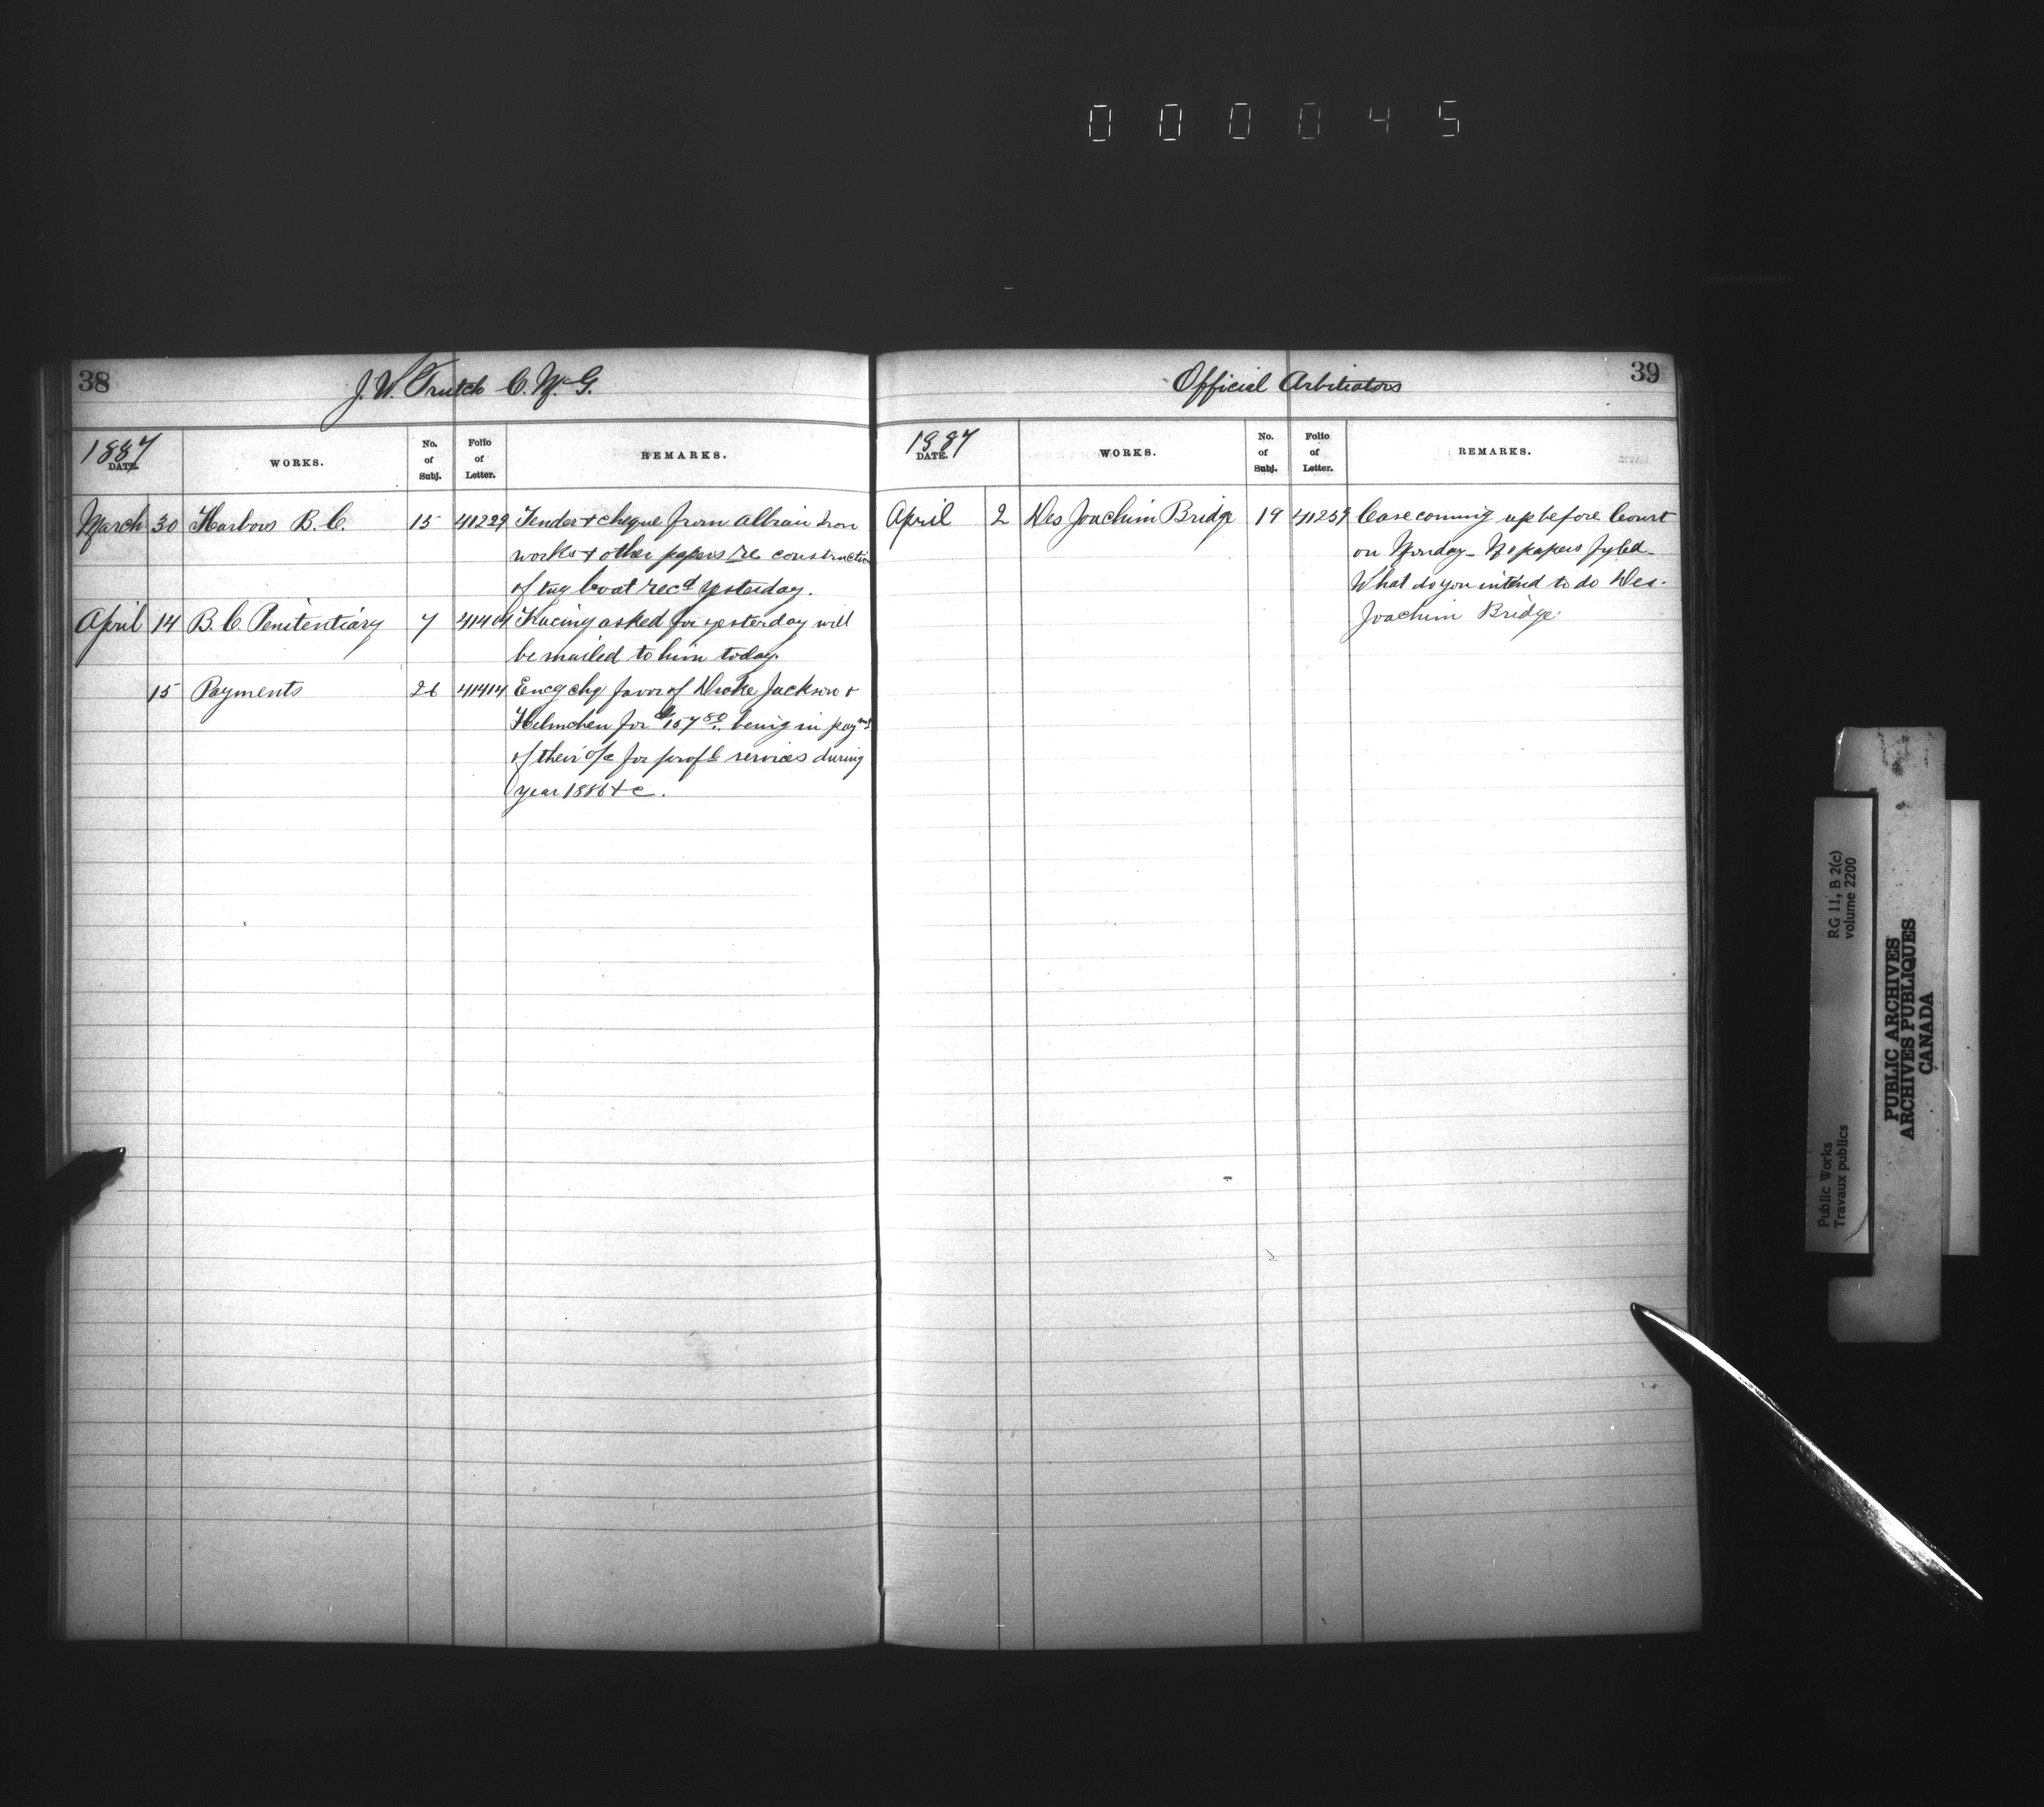 000045
38
J. W. Trutch C. M. G.
1887
DATE.
WORKS.
No. of Subj.
Folio of Letter.
REMARKS.
March 30 Harbors B. C. 15 41229 Tender & cheque from Albion Iron
works & other papers re construction
of tug boat recd yesterday.
April 14 B. C. Penitentiary 7 41404 Tracing asked for yesterday will
be mailed to him today.
15 Payments 26 41414 Encg chq favor of Drake Jackson &
Helmcken for $157.80 being in paymt
of their a/c for profl services during
year 1886 &c.
39
Official Arbitrators
1887
DATE.
WORKS.
No. of Subj.
Folio of Letter.
REMARKS.
April 2 Des Joachim Bridge 19 41259 Case coming up before Court
on Monday - No papers fyled -
What do you intend to do Des.
Joachim Bridge.
RG 11, B 2(c)
volume 2200
PUBLIC ARCHIVES
ARCHIVES PUBLIQUES
CANADA
Public Works
Travaux publics